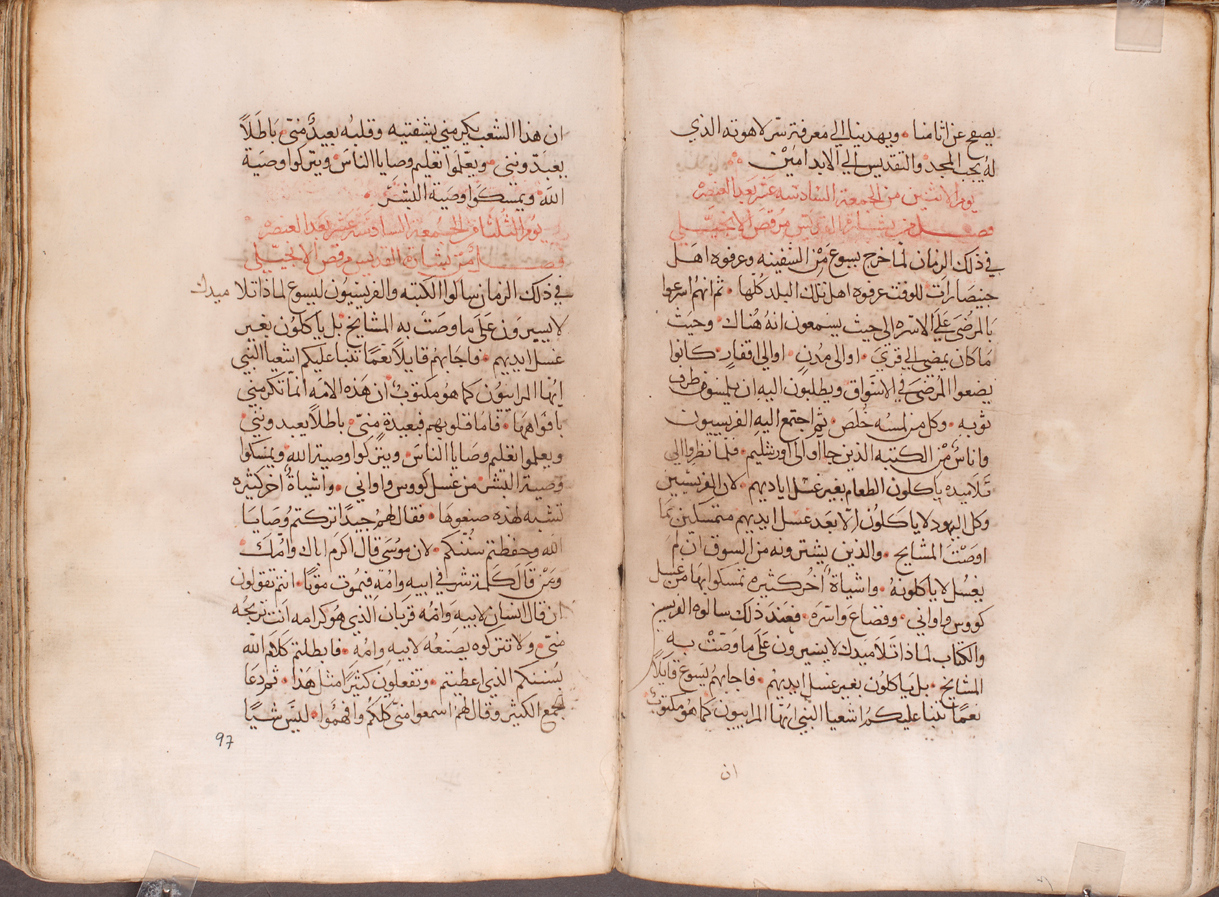 يصفح عن اثامنا • ويهدينا الي معرفة سر لاهوته الذي
له يجب المجد والتقديس الي الابد امين
يوم الاثنين من الجمعة السادسه عشر بعد العنصره
فصل من بشارة القديس مرقص الانجيلي
في ذلك الزمان لما خرج يسوع من السفينه وعرفوه اهل
جينصارات للوقت عرفوه اهل تلك البلد كلها • ثم انهم اسرعوا
بالمرضي علي الاسره الي حيث يسمعون انه هناك • وحيث
ما كان يمضي الي قري • او الي مدن • او الي اقفار • كانوا
يضعوا المرضي في الاسواق ويطلبون اليه ان يلمسو طرف
ثوبه • وكل من لمسه خلص • ثم اجتمع اليه الفريسيون
واناس من الكتبه الذين جااوا الي اورشليم • فلما نظروا الي
تلاميده ياكلون الطعام بغير غسل اياديهم • لان الفريسيين
وكل اليهود لا ياكلون الا بعد غسل ايديهم متمسكين بما
اوصت المشايح • والذين يشترونه من السوق ان لم
يغسل لا ياكلونه • واشياة اخر كثيره تمسكوا بها من غسل
كووس واواني • وقصاع واسره • فعند ذلك سالوه الفريسين
والكتاب لماذا تلاميدك لا يسيرون علي ما وصت به
المشايح • بل ياكلون بغير غسل ايديهم • فاجابهم يسوع قايلا
نعما تنبا عليكم اشعيا النبي ايها المراييون كما هو مكتوب
ان
ان هذا الشعب يكرمني بشفتيه وقلبه بعيد مني • باطلا
يعبدونني • ويعلموا تعليم وصايا الناس • ويتركوا وصية
الله • ويمسكوا وصية البشر •
يوم الثلثا من الجمعة السادسة عشر بعد العنصره
فصل من بشارة القديس مرقص الانجيلي
في ذلك الزمان سالوا الكتبه والفريسيون ليسوع لماذا تلاميدك
لا يسيرون علي ما وصت به المشايح • بل ياكلون بغير
غسل ايديهم • فاجابهم قايلا نعما تنبا عليكم اشعيا النبي
ايها المراييون كما هو مكتوب • ان هذه الامه انما تكرمني
بافواهها • فاما قلوبهم فبعيدة مني • باطلا يعبدونني •
ويعلموا تعليم وصايا الناس • ويتركوا وصية الله • ويمسكوا
وصية البشر من غسل كووس واواني • واشياة اخر كثيره
تشبه لهذه صنعوها • فقال لهم جيدا تركتم وصايا
الله وحفظتم سننكم • لان موسي قال اكرم اباك وامك •
ومن قال كلمة شر في ابيه وامه فيموت موتا • انتم تقولون
ان قال انسان لابيه وامه قربان الذي هو كرامه انت تربحه
مني • ولا تتركوه يصنعه لابيه وامه • فابطلتم كلام الله
بسننكم الذي اعطيتم • وتفعلون كثيرا مثل هذا • ثم دعا
لجمع الكثير وقال لهم اسمعوا مني كلكم وافهموا • ليس شيا
97